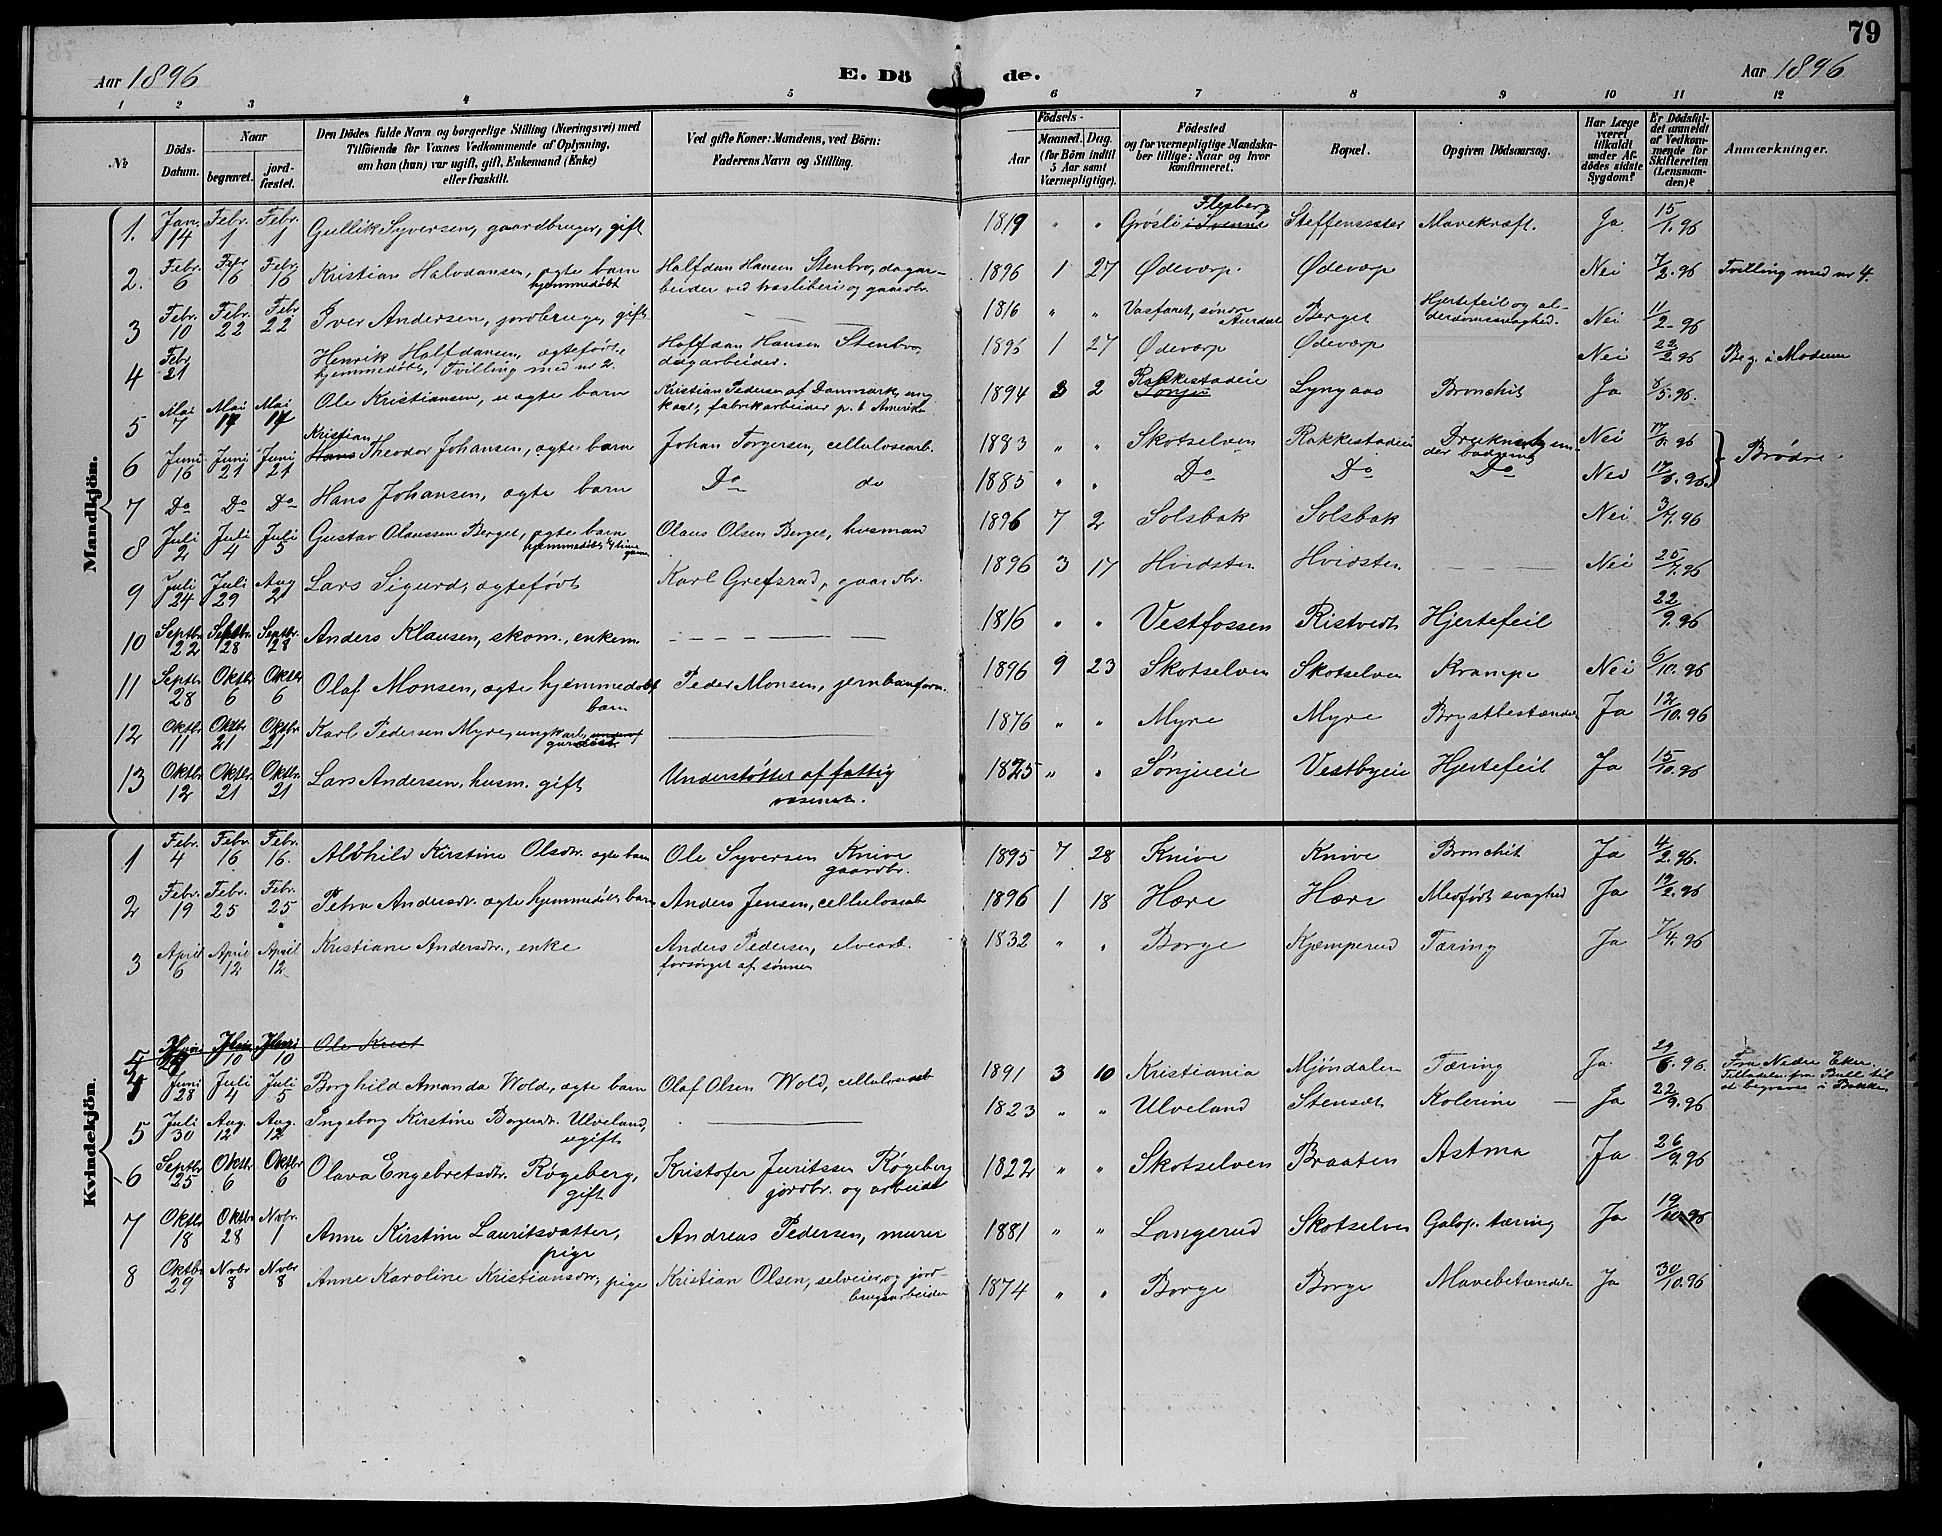 79
Aar 1896
E. Dö
de.
Aar 1896
1 2 3 4 5 6 7 8 9 10 11 12
№
Döds-Datum.
Naar
begravet.
jordfæstet.
Den Dödes fulde Navn og borgerlige Stilling (Næringsvei) med Tilföiende for Voxnes Vedkommende af Oplysning, om han (hun) var ugift, gift, Enkemand (Enke) eller fraskilt.
Ved gifte Koner: Mandens, ved Börn: Faderens Navn og Stilling.
Födsels-
Aar
Maaned. Dag.
(for Börn indtil 5 Aar samt Værnepligtige).
Födested og for værnepligtige Mandskaber tillige: Naar og hvor konfirmeret.
Bopæl.
Opgiven Dödsaarsag.
Har Læge været tilkaldt under Afdödes sidste Sygdom?
Er Dödsfaldet anmeldt af Vedkommende for Skifteretten (Lensmanden)?
Anmærkninger.
Mandkjön.
1. Jan. 14 Febr. 1 Febr. 1 Gullik Syversen, gaardbruger, gift 1819 " " Grøsli i Svenne Flesberg Steffensæter Mavekræft. Ja 15/1.96
2. Febr 6 Febr 16 Febr 16 Kristian Halvdansen, ægte barn hjemmedøbt Halfdan Hansen Stenbro, dagarbeider ved træsliberi og gaardbr. 1896 1 27 Ødevarp. Ødevarp Nei 7/2.96 Tvilling med nr 4.
3 Febr. 10 Febr. 22 Febr 22 Iver Andersen, jordbruge, gift 1816 " " Vasfaret, søndre Aurdal Berget Hjertefeil og alderdomssvaghed. Nei 11/2-96
4 Febr 21 Henrik Halfdansen, ægtefødt, hjemmedøbt, Tvilling med nr 2. Halfdan Hansen Stenbro, dagarbeider. 1896 1 27 Ødevarp Ødevarp Nei 22/2.96 Beg. i Modum
5 Mai 7 Mai 17 Mai 17 Ole Kristiansen, uægte barn Kristian Pedersen af Danmark, ungkarl, fabrikarbeider p.t. Amerika 1894 3 2 Rakkestadeie Lyngaas Bronchit Ja 8/5.96.
6 Juni 16 Juni 21 Juni 21 Kristian Hans Theodor Johansen, ægte barn Johan Torgersen, cellulosearb. 1883 " " Skotselven Rakkestadeie Druknet under badning Nei 17/6.96 Brødre.
7 Do Do Do Hans Johansen, ægte barn Do do 1885 " " Do Do Do Nei 17/6.96
8 Juli 2 Juli 4 Juli 5 Gustav Olaussen Berget, ægte barn hjemmedøbt Olaus Olsen Berget, husmand 1896 7 2 Solsbak Solsbak Nei 3/7.96
9 Juli 24 Juli 29 Aug 2 Lars Sigurd, ægtefødt Karl Grefsrud, gaardbr. 1896 3 17 Hvidsten Hvidsten Nei 25/7.96
10 Septbr. 22 Septbr. 28 Septbr. 28 Anders Klausen, skom., enkem. 1816 " " Vestfossen Ristvedt Hjertefeil 22/9.96
11 Septbr. 28 Oktbr 6 Oktbr 6 Olaf Monsen, ægte hjemmedøbt barn Peder Monsen, jernbanform. 1896 9 23 Skotselven Skotselven Krampe Nei 6/10.96
12 Oktbr 11 Oktbr 21 Oktbr 21 Karl Pedersen Myre, ungkarl, 1876 " " Myre Myre Brystbetændelse Ja 12/10.96
13 Oktbr 12 Oktbr 21 Oktbr 21 Lars Andersen, husm. gift Understøttet af fattigvæsenet. 1825 " " Sønjueie Vestbyeie Hjertefeil Ja 15/10.96
Kvindekjön.
1 Febr. 4 Febr. 16 Febr. 16. Alvhild Kirstine Olsdtr. ægte barn Ole Syversen Knive gaardbr. 1895 7 28 Knive Knive Bronchit Ja 4/2.96.
2 Febr. 19 Febr. 25 Febr. 25 Petra Andersdtr. ægte hjemmedøbt barn Anders Jensen, cellulosearb 1896 1 18 Hære Hære Medfødt svaghed Ja 19/2.96
3 April 6 April 12 April 12 Kristiane Andersdtr., enke Anders Pedersen, elvearb. forsørget af sønnen 1832 " " Borge Kjæmperud Tæring Ja 7/4.96
Juni 10 Juni 10 Ole Krist
4 Juni 28 Juli 4 Juli 5 Borghild Amanda Wold, ægte barn Olaf Olsen Wold, cellulosearb 1891 3 10 Kristiania Mjøndalen Tæring Ja 29/6.96. Fra Nedre Eker. Tilladelse fra Bull til at begraves i Bakke.
5 Juli 30 Aug. 12 Aug. 12 Ingeborg Kirstine Borgersdr. Ulveland, ugift 1823 " " Ulveland Stenset Kolerine Ja 22/9.96
6 Septbr 25 Oktbr 6 Oktbr 6 Olava Engebretsdtr. Røgeberg, gift Kristofer Juritssen Røgeberg jordbr. og arbeider 1822 " " Skotselven Braaten Astma Ja 26/9.96
7 Oktbr 18 Oktbr 28 Novbr. 1 Anne Kirstine Lauritsdatter, pige Andreas Pedersen, murer 1881 " " Langerud Skotselven Galop. tæring Ja 19/10.96
8 Oktbr 29 Novbr 8 Novbr 8 Anne Karoline Kristiansdtr, pige Kristian Olsen, selveier og jordbrugsarbeider 1874 " " Borge Borge Mavebetændelse Ja 30/10.96